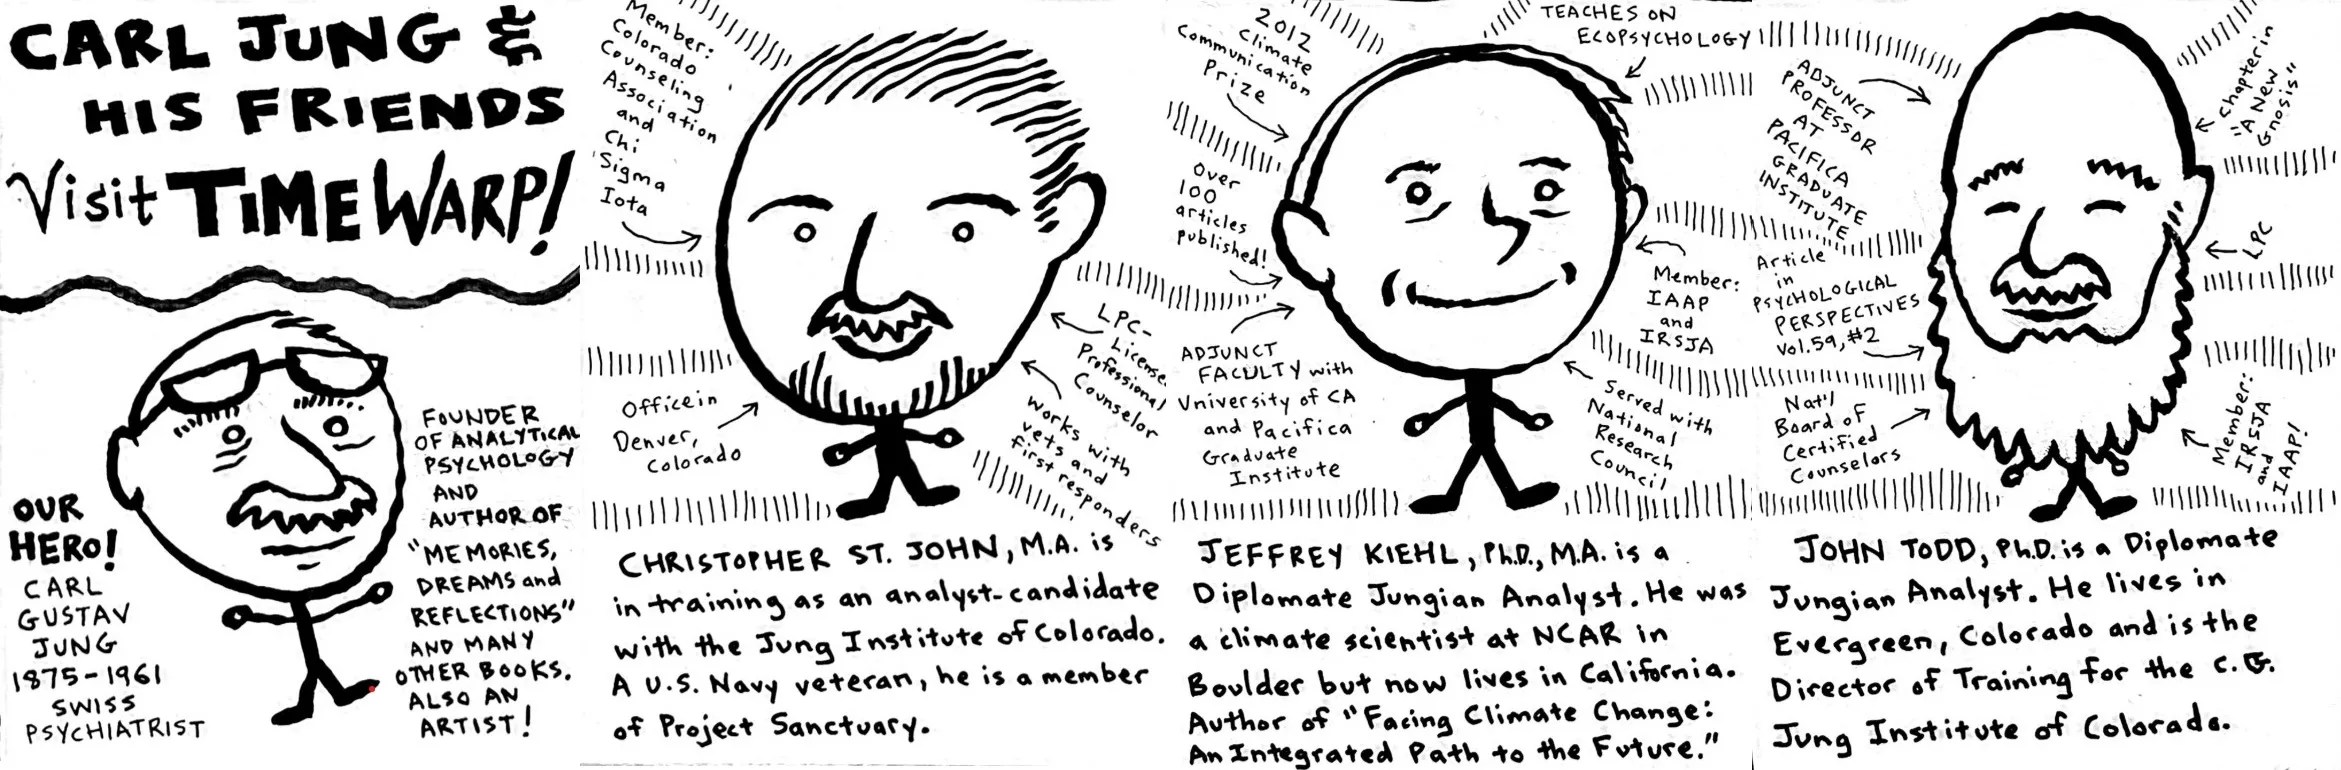 CARL JUNG &
HIS FRIENDS
Visit TIME WARP!
OUR
HERO!
CARL
GUSTAV
JUNG
1875-1961
SWISS
PSYCHIATRIST
FOUNDER
OF ANALYTICAL
PSYCHOLOGY
AND
AUTHOR OF
"MEMORIES,
DREAMS and
REFLECTIONS"
AND MANY
OTHER BOOKS.
ALSO AN
ARTIST!
Member:
Colorado
Counseling
Association
and
Chi
Sigma
Iota
Office in
Denver,
Colorado
LPC-
License
Professional
Counselor
Works with
vets and
first responders
CHRISTOPHER ST. JOHN, M.A. is
in training as an analyst-candidate
with the Jung Institute of Colorado.
A U.S. Navy veteran, he is a member
of Project Sanctuary.
2012
Climate
Communication
Prize
Over
100
articles
published!
ADJUNCT
FACULTY with
University of CA
and Pacifica
Graduate
Institute
TEACHES ON
ECOPSYCHOLOGY
Member:
IAAP
and
IRSJA
Served with
National
Research
Council
JEFFREY KIEHL, Ph.D., M.A. is a
Diplomate Jungian Analyst. He was
a climate scientist at NCAR in
Boulder but now lives in California.
Author of "Facing Climate Change:
An Integrated Path to the Future."
ADJUNCT
PROFESSOR
AT
PACIFICA
GRADUATE
INSTITUTE
Article
in
PSYCHOLOGICAL
PERSPECTIVES
Vol.59, #2
Nat'l
Board of
Certified
Counselors
Chapter in
"A New
Gnosis"
LPC
Member:
IRSJA
and
IAAP!
JOHN TODD, Ph.D. is a Diplomate
Jungian Analyst. He lives in
Evergreen, Colorado and is the
Director of Training for the C.G.
Jung Institute of Colorado.